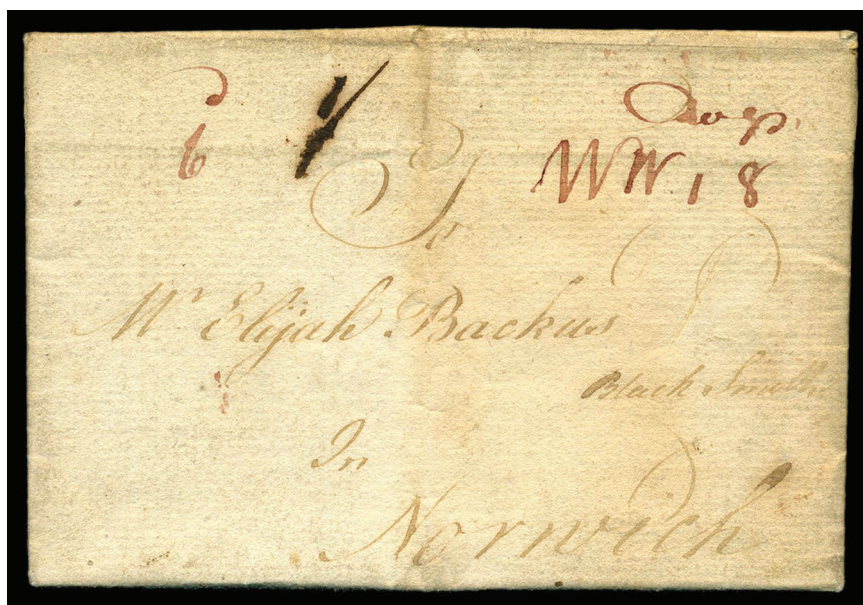 6
To
WW 18
Mr Elijah Backus
Black Smith
In
Norwich